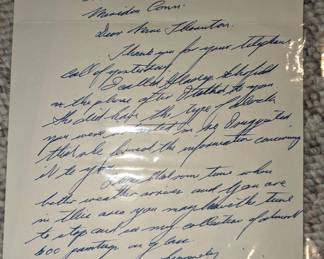 Meriden Conn.
Dear Mrs. Thornton:
Thank you for your telephone
call of yesterday.
I called Gladys Schofield
on the phone after I talked to you
She did have the type of clock
you were interested in. I suggested
that she forward the information concerning
it to you.
time when
better weather arrives and if you are
in this area you may have the time
to stop and see my collection of almost
600 paintings on glass
Sincerely